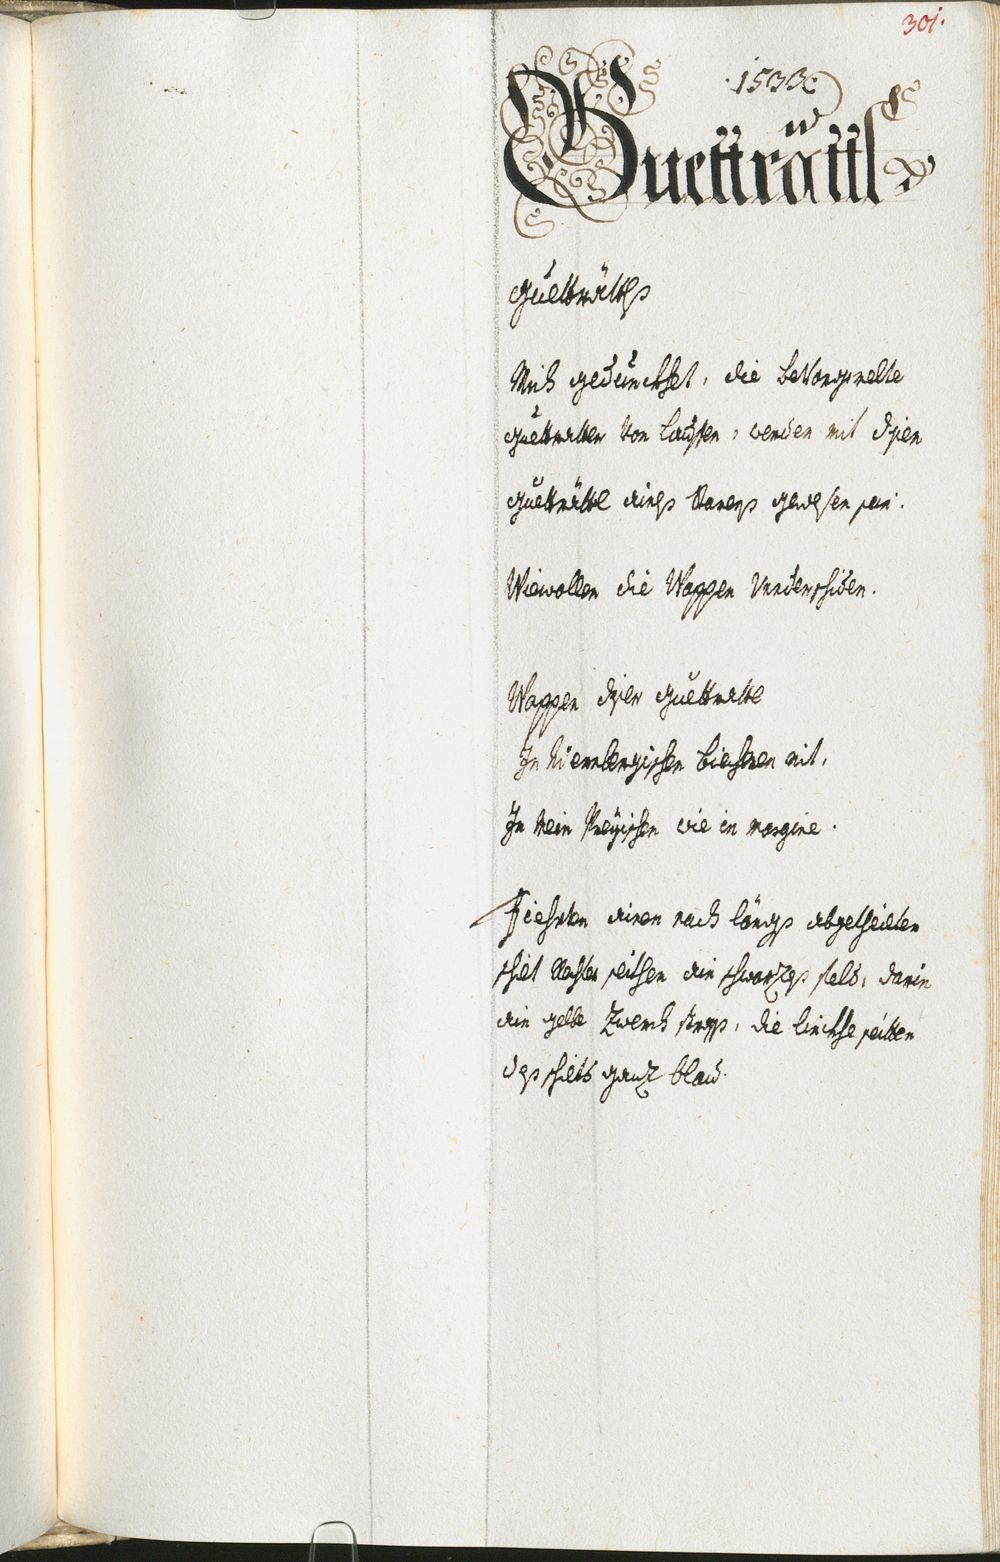 301.
.1533.
Guetträttl
Guetträtls
Mich geduncket, die bevorgemelte
Guettratter von Lauffen, werden mit disen
Guetträttl aines Stamens gewesen sein.
Wiewollen die Wappen Underschiden.
Wappen diser Guettrattl
In Niernbergischen Biechern nit,
In mein Preÿischen wie in margine.
Fiehrten ainen nach längs abgetheilten
schilt Rechter seithen ain schwarzes feld, darin
ain gelbe Zwerch stras, die linckhe seitten
des schilts ganz blau.